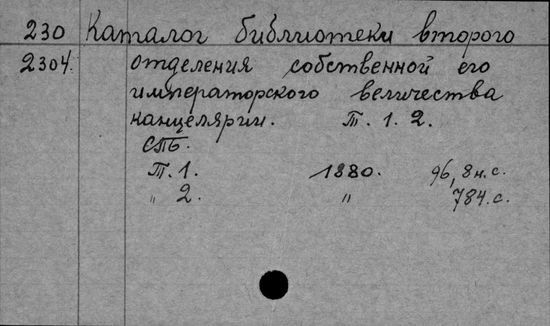 230 Каталог библиотеки второго
2304. отделения собственной его
императорского величества
канцелярии. Т. 1. 2.
СПБ.
Т. 1. 1880. 96, 8 н. с.
" 2. " 784. с.